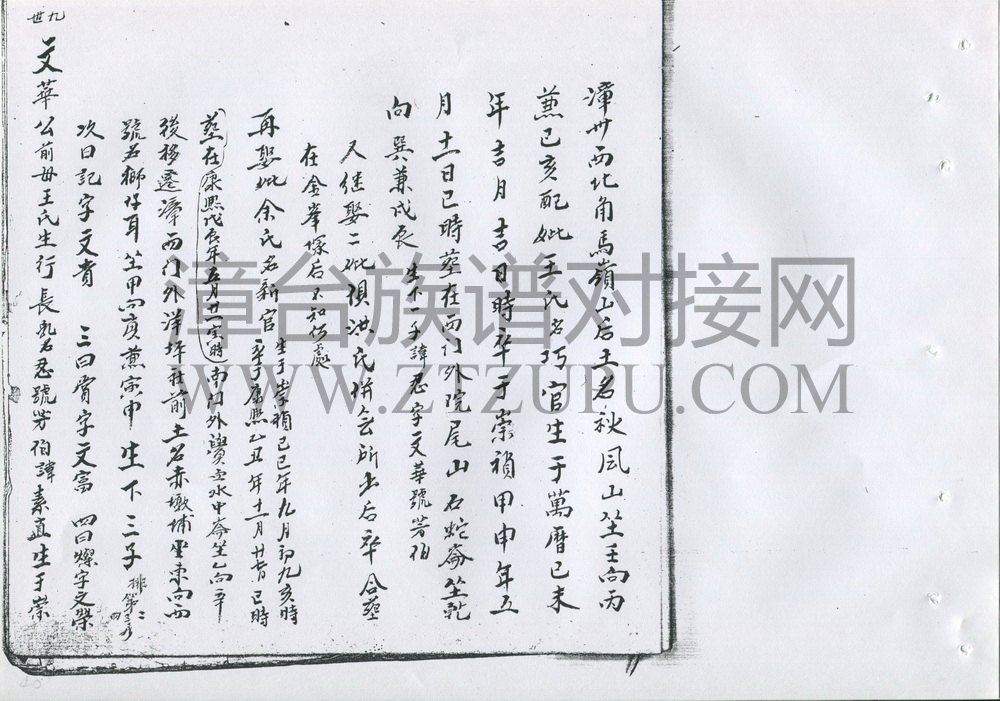 漳州西北角馬嶺山后土名秋風山坐壬向丙
兼己亥配妣王氏名巧官生于萬曆己未
年吉月吉日時卒于崇禎甲申年五
月十一日巳時葬在西门外院尾山石蛇崙坐乾
向巽兼戌辰 生下一子諱忍字文華號芳伯
又继娶二妣俱洪氏併会所出后卒合葬
在金峯塚后不知何處
再娶妣余氏名新官 生于崇禎己巳年九月初九亥時
卒于康熙乙丑年十二月廿 日巳時
葬在康熙戊辰年五月廿一寅時南门外 水中崙坐乙向辛
後移遷漳西门外洋坪社前土名赤墩埔坐東向西
號名獅仔耳坐甲向庚兼寅申 生下三子 排第二三四
次曰記字文貴 三曰賞字文富 四曰燦字文榮
九世
文華公前母王氏生行長乳名忍號芳伯諱素直生于崇
漳台族谱对接网
WWW.ZTZUPU.COM